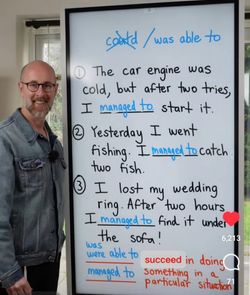 could / was able to
① The car engine was
cold, but after two tries,
I managed to start it.
② Yesterday I went
fishing. I managed to catch
two fish.
③ I lost my wedding
ring. After two hours
I managed to find it under
the sofa!
was
were able to succeed in doing
managed to something in a
particular situation
6,213
71